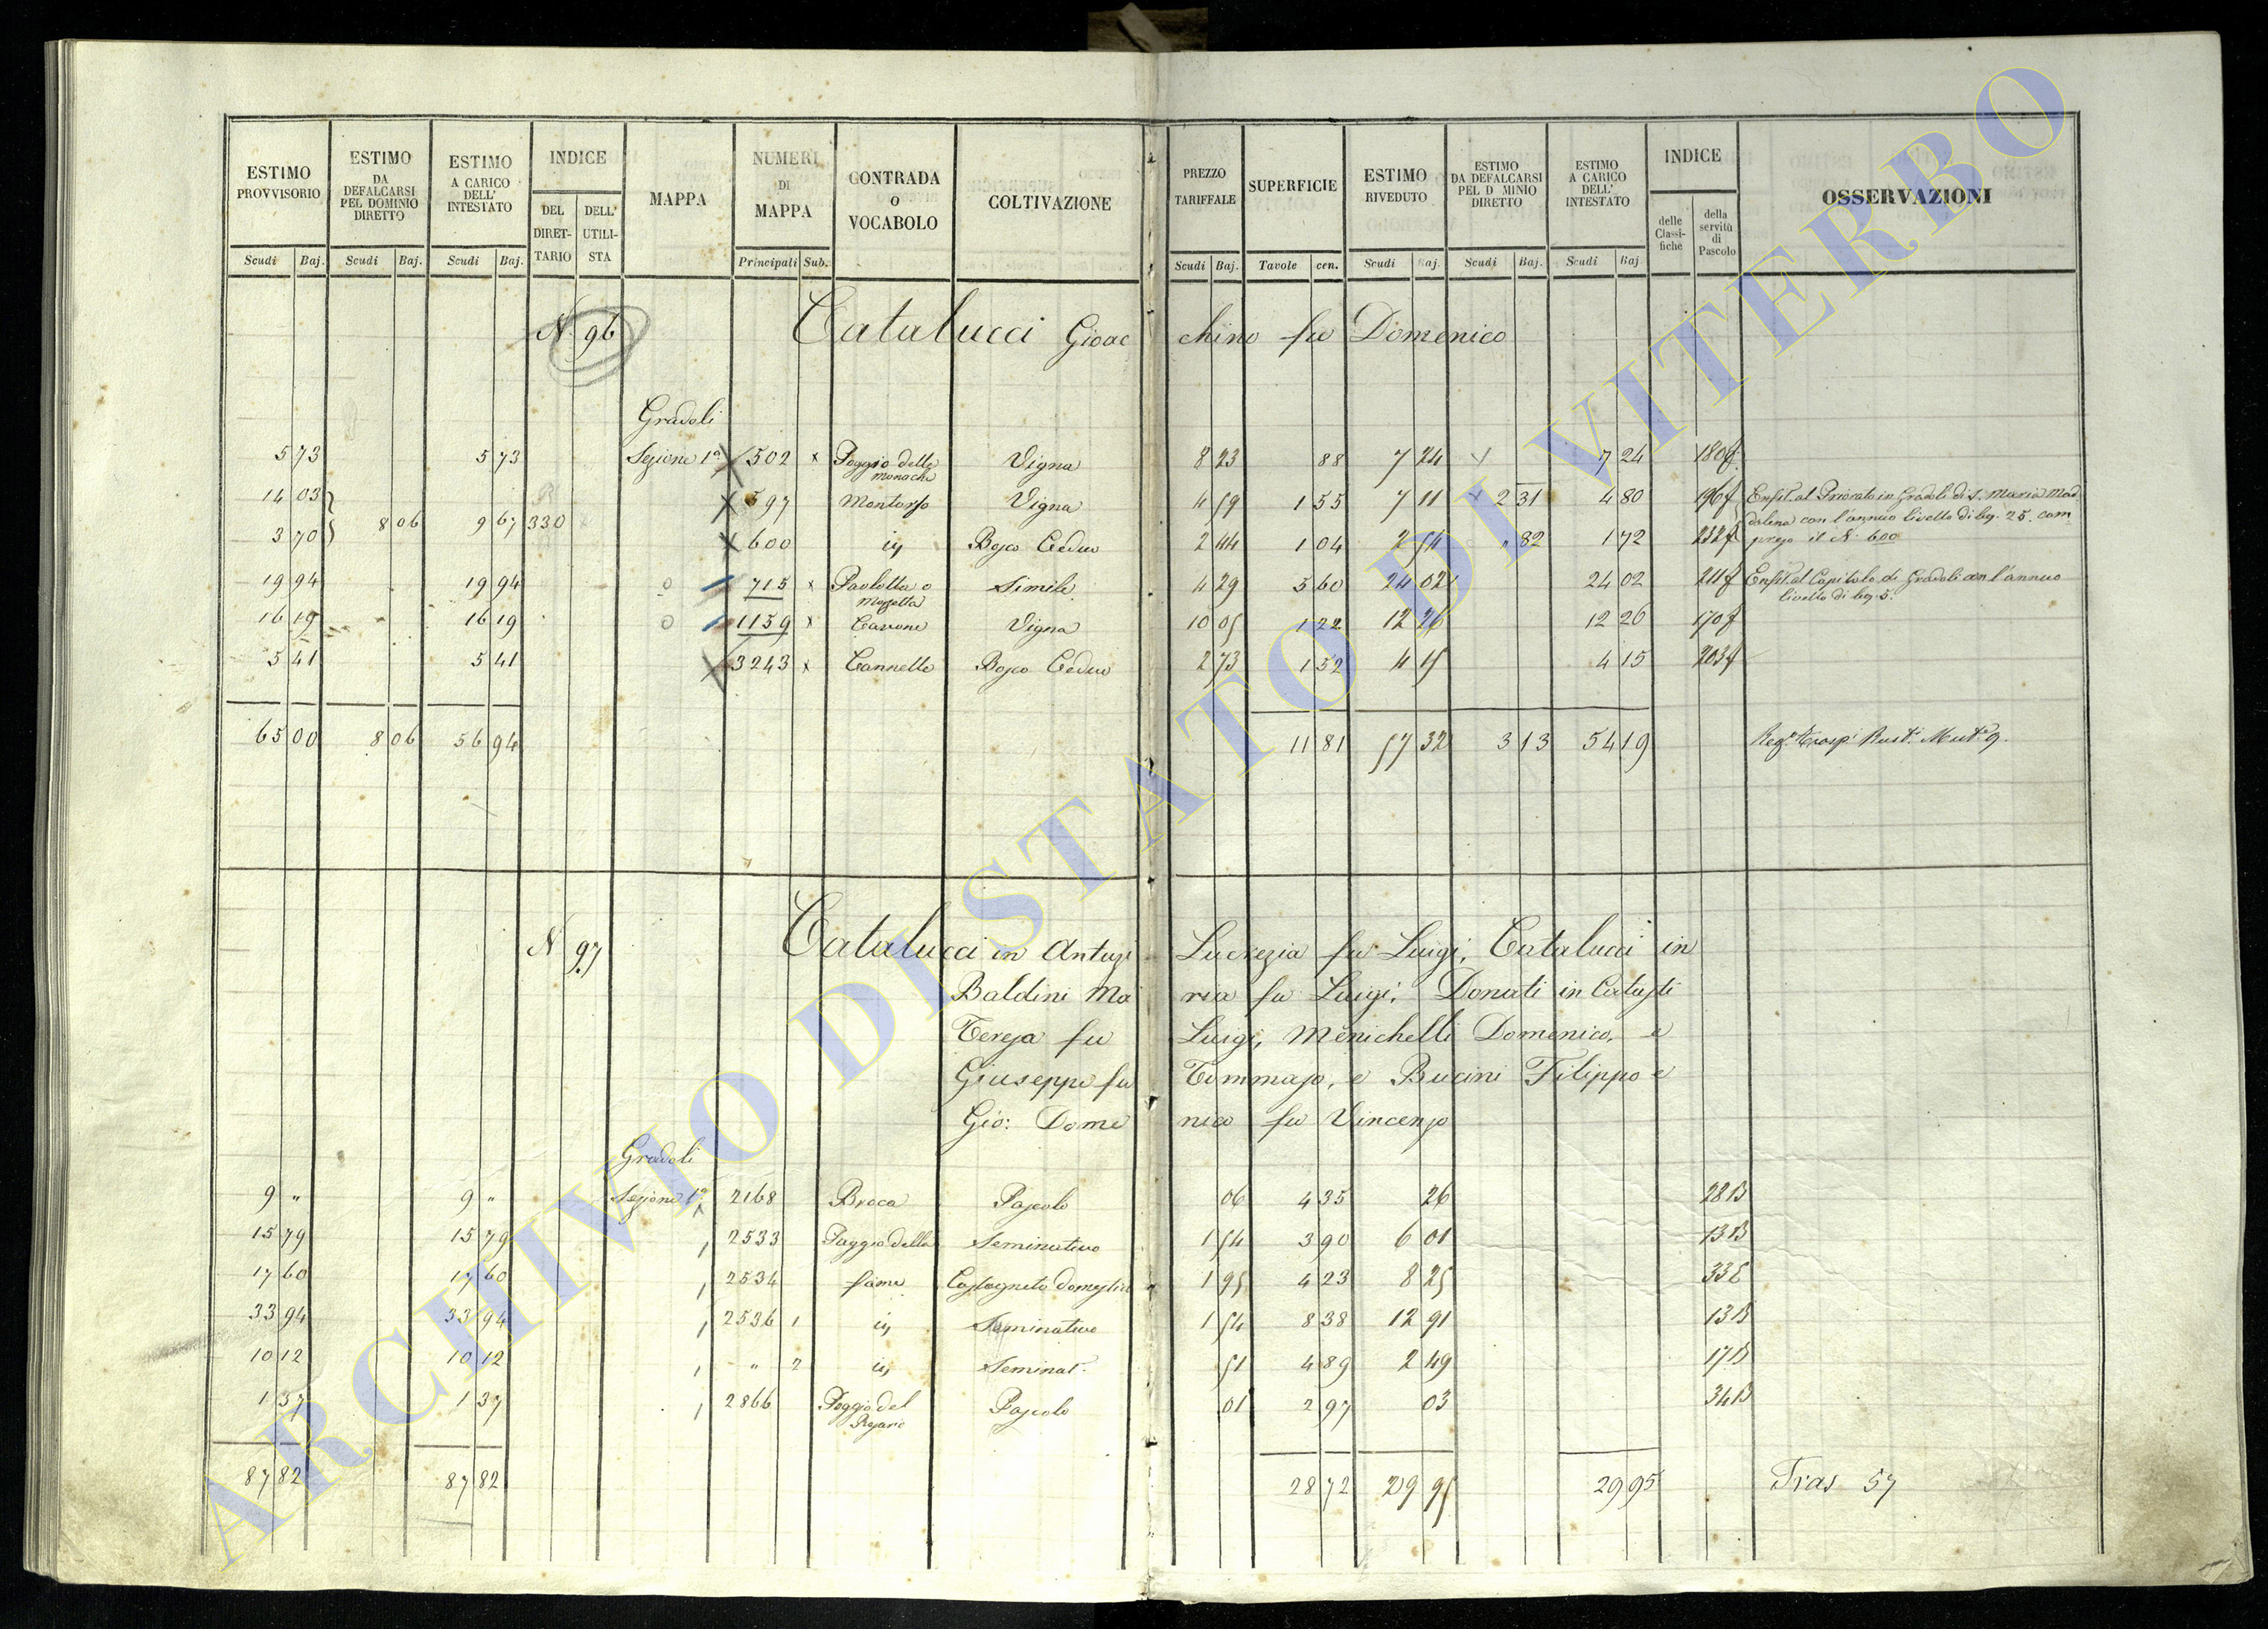 ESTIMO PROVVISORIO | ESTIMO DA DEFALCARSI PEL DOMINIO DIRETTO | ESTIMO A CARICO DELL' INTESTATO | INDICE | MAPPA | NUMERI DI MAPPA | CONTRADA O VOCABOLO | COLTIVAZIONE | PREZZO TARIFFALE | SUPERFICIE | ESTIMO RIVEDUTO | ESTIMO DA DEFALCARSI PEL D MINIO DIRETTO | ESTIMO A CARICO DELL' INTESTATO | INDICE | OSSERVAZIONI
DEL DIRETTARIO | DELL' UTILISTA | delle Classifiche | della servitù di Pascolo
Scudi | Baj. | Scudi | Baj. | Scudi | Baj. | Principali | Sub. | Scudi | Baj. | Tavole | cen. | Scudi | Baj. | Scudi | Baj. | Scudi | Baj
N. 96 Catalucci Gioacchino fu Domenico
Gradoli
5 73 | 5 73 | Sezione 1ª | 502 x | Poggio delle Monache | Vigna | 8 23 | 88 | 7 24 | 7 24 | 180
14 03 | 597 | Montorso | Vigna | 4 59 | 1 55 | 7 11 | 2 31 | 4 80 | 196 | Enfit. al Priorato in Gradoli di S. Maria Mad
8 06 | 9 67 | 330 | dalena con l'annuo livello di bj. 25. com
3 70 | 600 | Bosco Ceduo | 2 44 | 1 04 | 2 54 | " 82 | 1 72 | 232 | preso il N. 600
19 94 | 19 94 | 715 x | Paoletta o Mazzetta | Simile | 4 29 | 5 60 | 24 02 | 24 02 | 211 | Enfit. al Capitolo di Gradoli con l'annuo
livello di bj. 5.
16 19 | 16 19 | 1159 x | Cavone | Vigna | 10 05 | 1 22 | 12 26 | 12 26 | 170
5 41 | 5 41 | 3243 x | Cannelle | Bosco Ceduo | 2 73 | 1 52 | 4 15 | 4 15 | 203
65 00 | 8 06 | 56 94 | 11 81 | 57 32 | 3 13 | 54 19 | Trasp. Rust. Mut. 9.
N 97 Catalucci in Antuzi Lucrezia fu Luigi, Catalucci in
Baldini Maria fu Luigi, Donati in Catasti
Teresa fu Luigi, Menichelli Domenico, e
Giuseppe fu Tommaso, e Bucini Filippo e
Gio: Domenico fu Vincenzo
Gradoli
9 " | 9 " | Sezione 1ª | 2168 | Broca | Pascolo | 06 | 4 35 | 26 | 28B
15 79 | 15 79 | 2533 | Poggio della | Seminativo | 1 54 | 3 90 | 6 01 | 13B
17 60 | 17 60 | 2534 | fame | Castagneto domestico | 1 95 | 4 23 | 8 25 | 33E
33 94 | 33 94 | 2536 1 | Seminativo | 1 54 | 8 38 | 12 91 | 13B
10 12 | 10 12 | " 2 | Seminat. | 51 | 4 89 | 2 49 | 17B
1 37 | 1 37 | 2866 | Poggio del | Pascolo | 01 | 2 97 | 03 | 34B
87 82 | 87 82 | 28 72 | 29 95 | 29 95 | Tras 57
ARCHIVIO DI STATO DI VITERBO